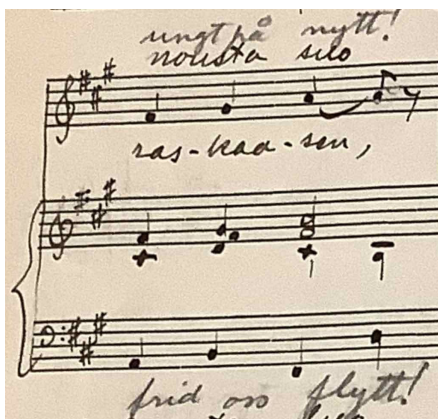 ungt på nytt!
nousta suo
ras-kaa-sen,
frid oss flytt!